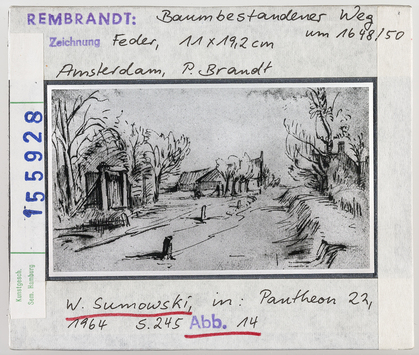 REMBRANDT: Baumbestandener Weg
Zeichnung Feder, 11 x 19,2 cm um 1648/50
Amsterdam, P. Brandt
155928
Kunstgesch.
Sem. Hamburg
W. Sumowski, in: Pantheon 22,
1964 S. 245 Abb. 14